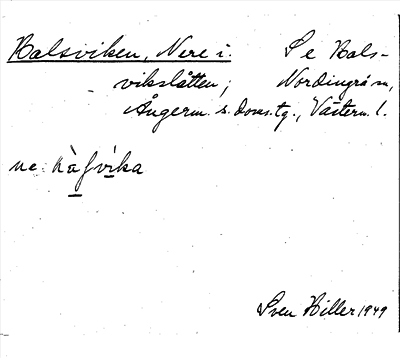 Balsviken, Nere i. Se Bals-
vikslåtten; Nordingrå sn,
Ångerm. s. doms.tg., Västern. l.
ne:
Sven Hiller 1949